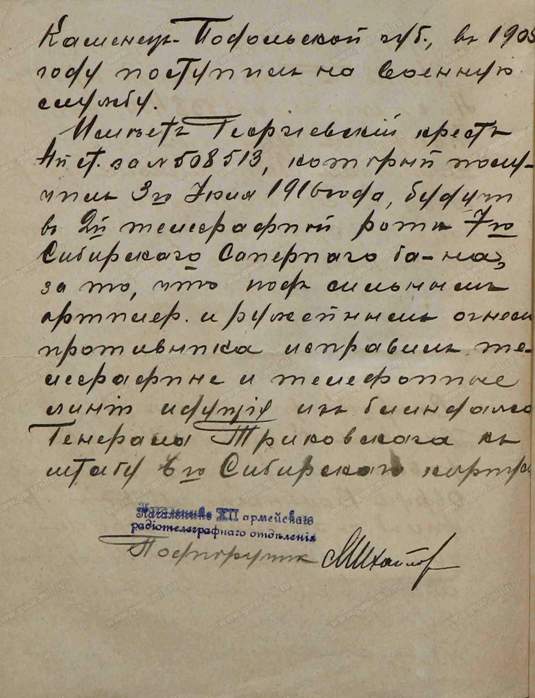 Каменец-Подольской губ., въ 190
году поступилъ на военную
службу.
Имѣетъ Георгіевскій крестъ
4й ст. за № 508513, который полу-
чилъ 3го Іюля 1916 года, будучи
въ 2й телеграфной ротѣ 7го
Сибирскаго Сапернаго ба-на,
за то, что подъ сильнымъ
артилер. и ружейнымъ огнемъ
противника исправилъ те-
леграфные и телефонные
линіи идущія изъ блиндажа
Генерала Триковскаго къ
штабу 6го Сибирскаго корпуса
Начальникъ XII армейскаго
радіотелеграфнаго отдѣленія
Подпоручик